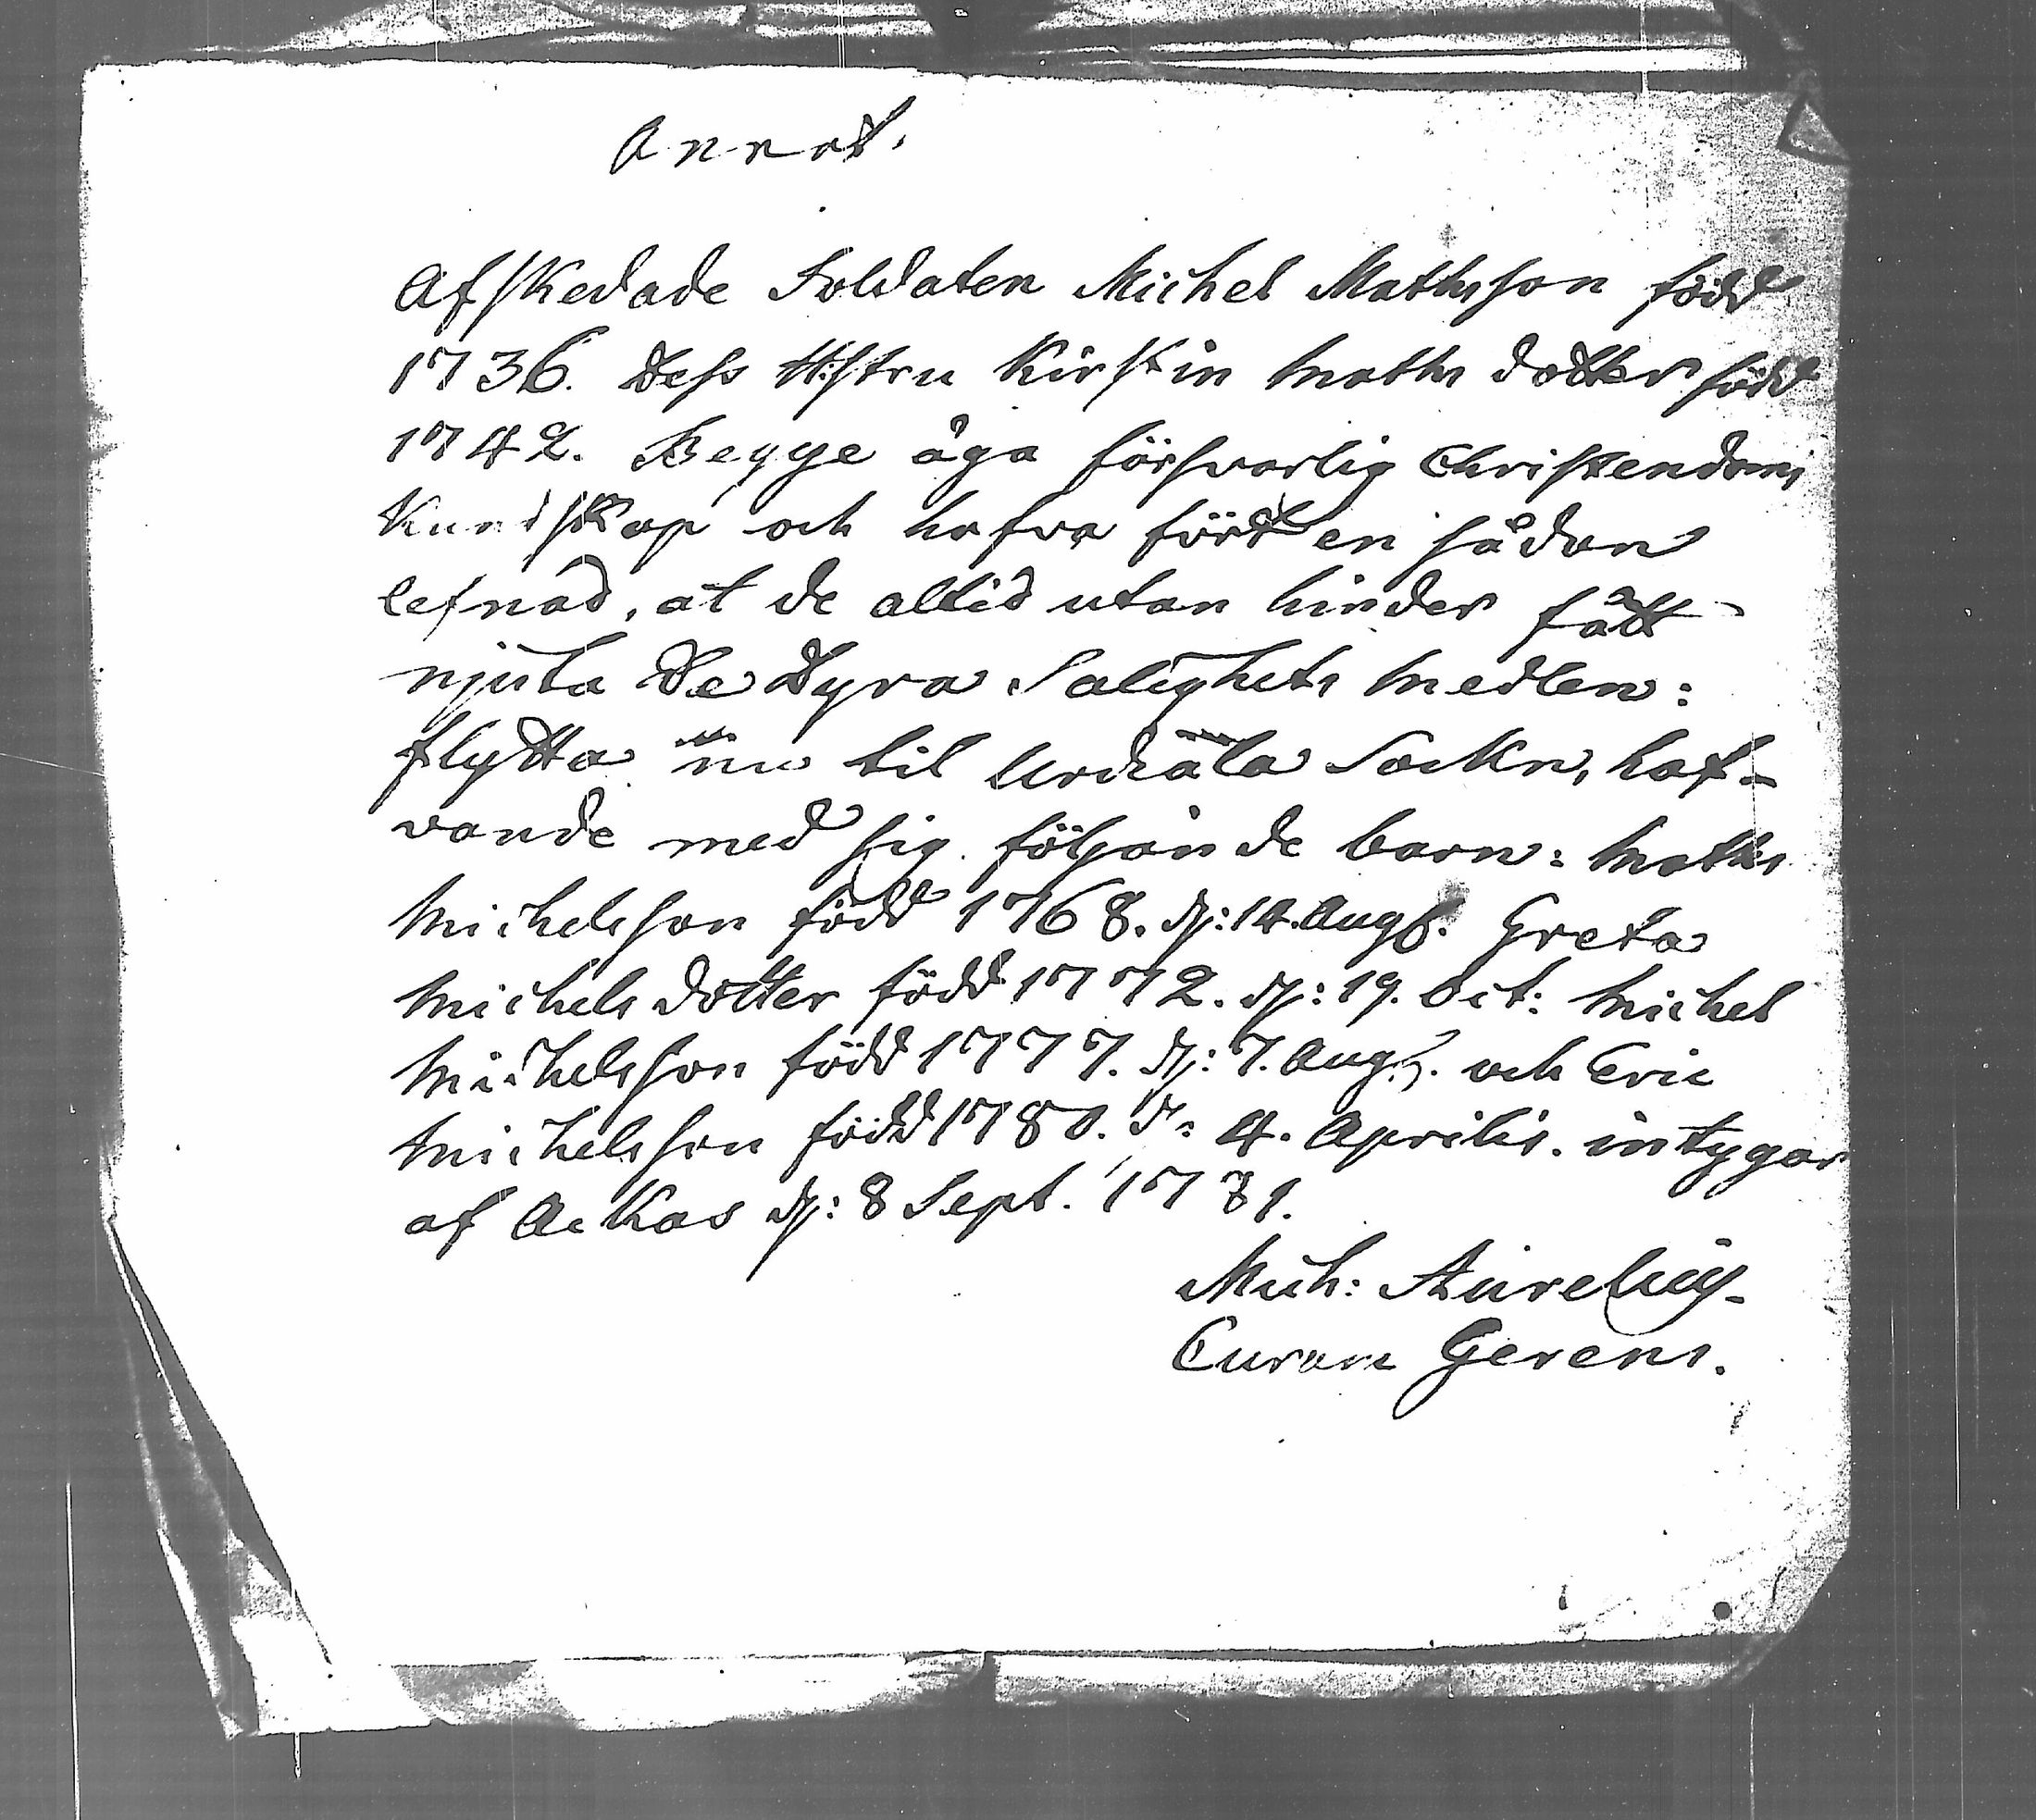 Annot.
Afskedade Soldaten Michel Mathsson född
1736. Dess Hstru Kirstin Maths dotter född
1742. Begge äga försvarlig Christendoms
Kundskap och hafva fördt en sådan
lefnad, at de altid utan hinder fått
njuta De Dyra Salighets medlen:
flytta nu til Urdiala Sockn, haf-
vande med sig följande barn: Maths
Michelsson född 1768. d: 14. Aug. Greta
Michels dotter född 1772. d: 19. Oct: Michel
Michelsson född 1777. d: 7. Aug. och Eric
Michelsson född 1780. d: 4. Aprilis. intygar
af Ackas d: 8 Sept. 1781.
Mich: Aurelius
Curam Gerens.